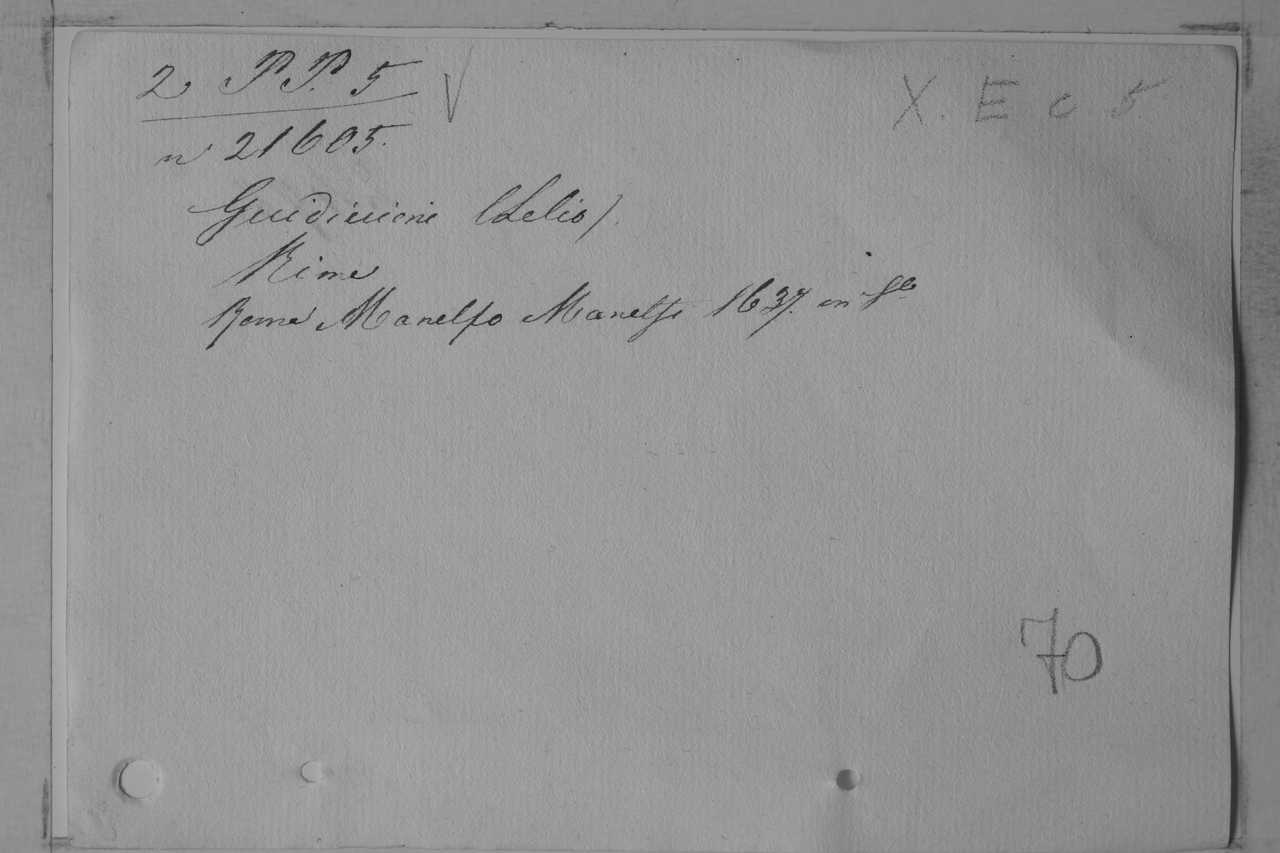 2 PP. 5 V X. E c 5
n 21605.
Guidiccioni (Lelio).
Rime
Roma Manelfo Manelfi 1637. in 8º
70